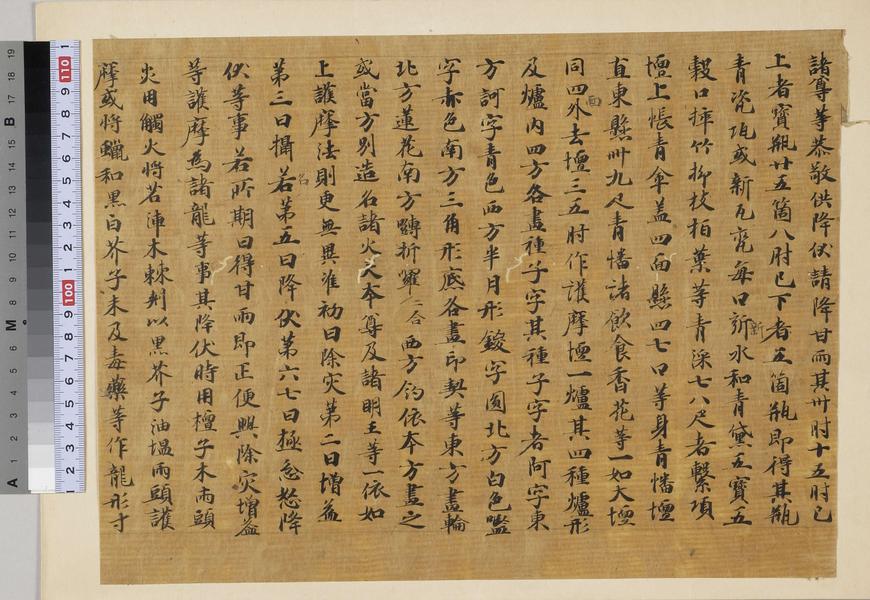 諸尊等恭敬供降伏請降甘雨其卅肘十五肘已
上者寶瓶廿五箇八肘已下者五箇瓶即得其瓶
青瓷瓨或新瓦甕每口新新水和青黛五寶五
穀口挿竹抑枝柏葉等青綵七八尺者繫項
壇上悵青傘盖四面懸四七口等身青幡壇
直東懸卅九尺青幡諸飲食香花等一如大壇
同四面外去壇三五肘作護摩壇一爐其四種爐形
及爐内四方各畫種子字其種子字者阿字東
方訶字青色西方半月形鑁字圓北方白色㘕
字亦色南方三角形底各畫印契等東方畫輪
北方蓮花南方嚩折羅二合西方鈎依本方畫之
或當方别造名諸火天本尊及諸明王等一依如
上護摩法則更無異准初日除灾第二日增益
第三日攝名若第五日降伏第六七日極忿怒降
伏等事若所期日得甘雨即正便興除灾增益
等護摩為諸龍等事其降伏時用檀子木兩頭
火用觸火將若練木棘刾以黒芥子油搵兩頭護
摩或將蠟和黒白芥子末及毒藥等作龍形寸